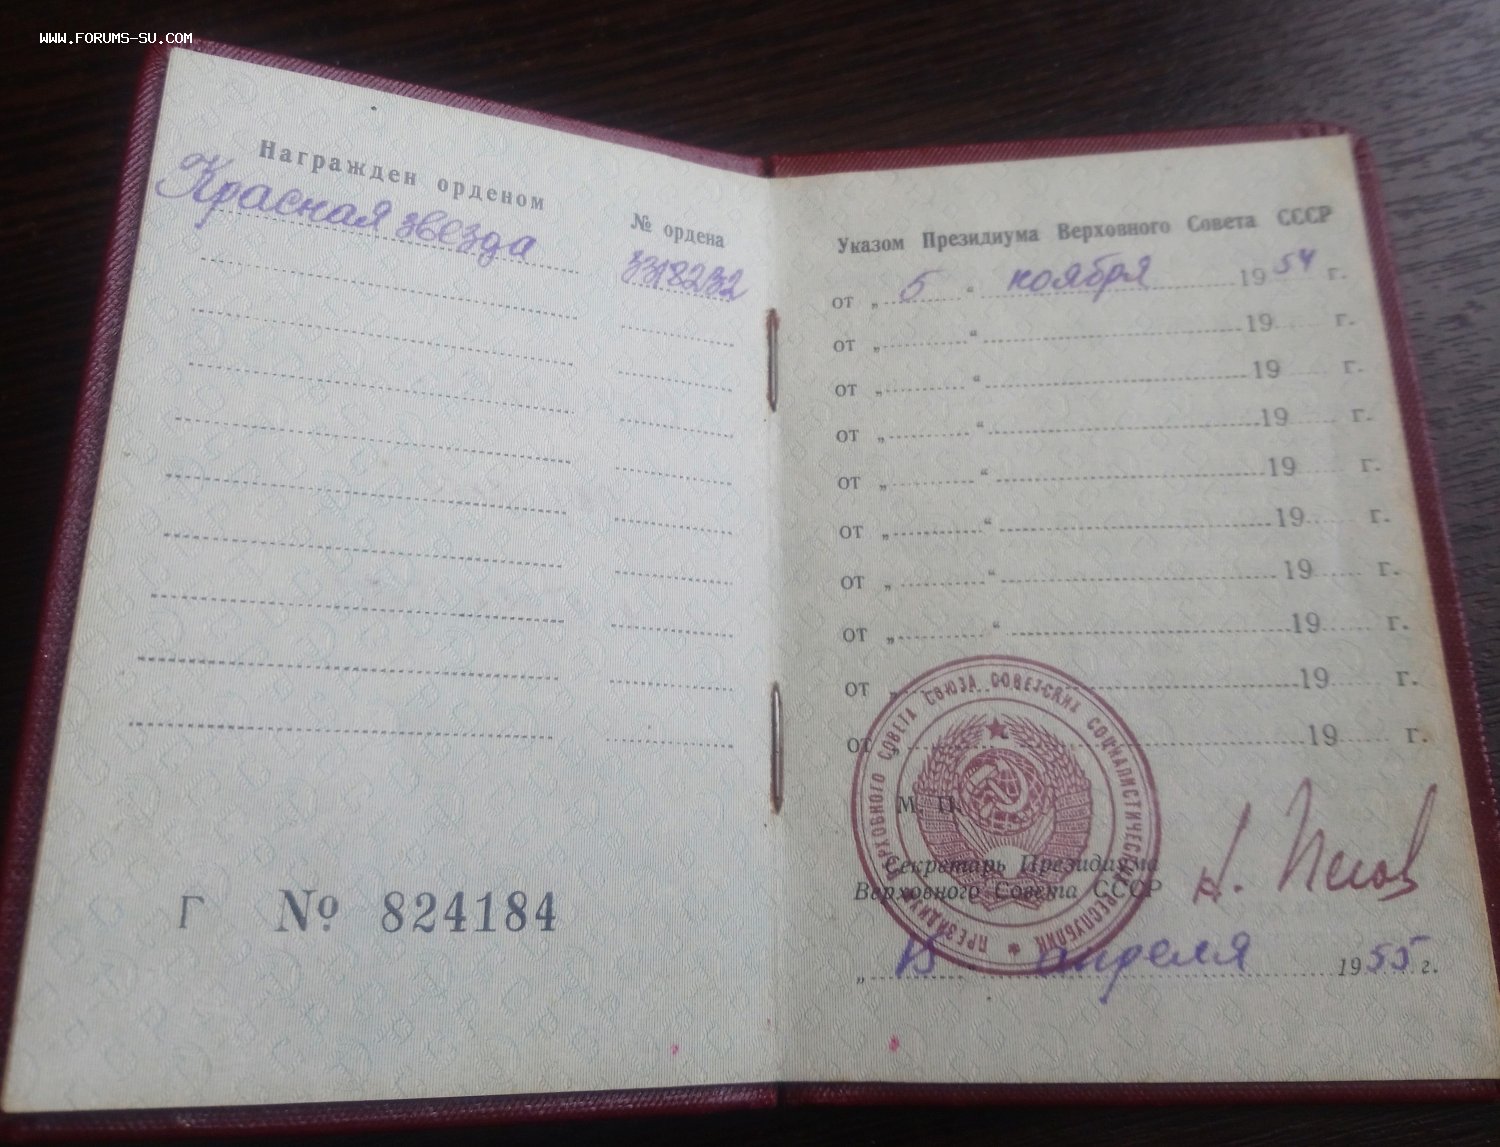 www.forums-su.com
Награжден орденом
№ ордена
Красная звезда
3318232
Г № 824184
Указом Президиума Верховного Совета СССР
от „ 5 “ ноября 1954 г.
от „ “ 19 г.
от „ “ 19 г.
от „ “ 19 г.
от „ “ 19 г.
от „ “ 19 г.
от „ “ 19 г.
от „ “ 19 г.
от „ 19 г.
от „ 19 г.
ПРЕЗИДИУМ ВЕРХОВНОГО СОВЕТА СОЮЗА СОВЕТСКИХ СОЦИАЛИСТИЧЕСКИХ РЕСПУБЛИК
М. П.
Секретарь Президиума
Верховного Совета СССР
Н. Пегов
„ 15 апреля 1955 г.